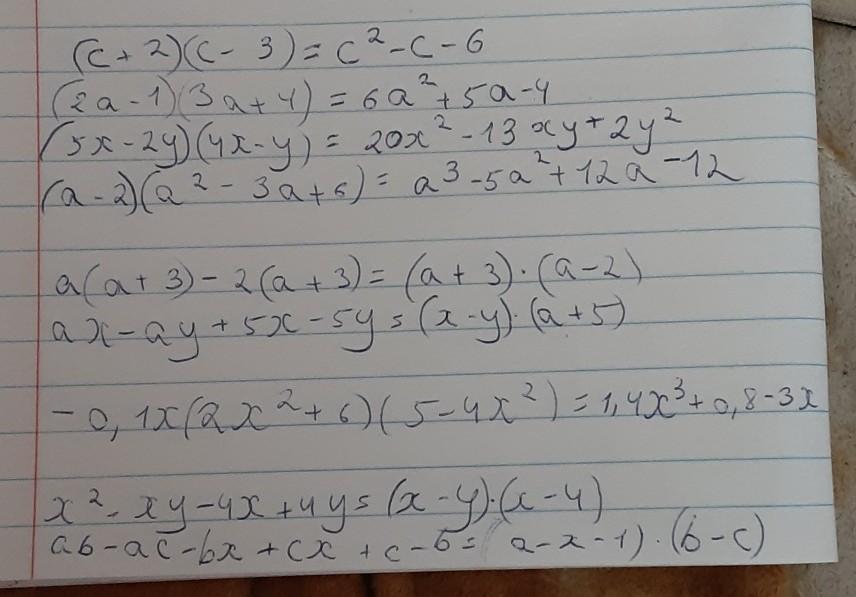 (c+2)(c-3)=c²-c-6
(2a-1)(3a+4)=6a²+5a-4
(5x-2y)(4x-y)=20x²-13xy+2y²
(a-2)(a²-3a+6)=a³-5a²+12a-12
a(a+3)-2(a+3)=(a+3)·(a-2)
ax-ay+5x-5y=(x-y)·(a+5)
-0,1x(2x²+6)(5-4x²)=1,4x³+0,8-3x
x²-xy-4x+4y=(x-y)·(x-4)
ab-ac-bx+cx+c-b=(a-x-1)·(b-c)